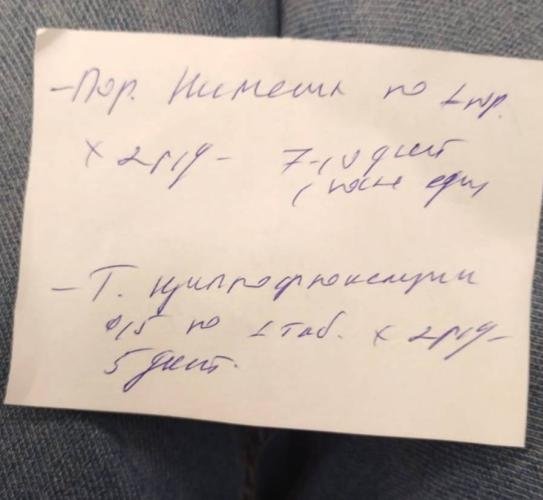 - Пор. Нимесил по 1 пор.
х 2 р/д - 7-10 дней
(после еды
- Т. Ципрофлоксацин
0,5 по 1 таб. х 2 р/д -
5 дней.